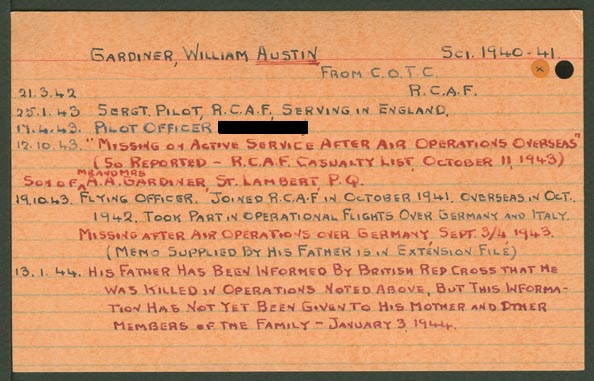 GARDINER, WILLIAM AUSTIN SCI. 1940-41.
FROM C.O.T.C.
21.3.42 R.C.A.F.
25.1.43 SERGT. PILOT, R.C.A.F., SERVING IN ENGLAND.
17.4.43. PILOT OFFICER
12.10.43. "MISSING ON ACTIVE SERVICE AFTER AIR OPERATIONS OVERSEAS"
(SO REPORTED - R.C.A.F. CASUALTY LIST, OCTOBER 11, 1943)
SON OF MR AND MRS A.A. GARDINER, ST. LAMBERT, P.Q.
19.10.43. FLYING OFFICER. JOINED R.C.A.F. IN OCTOBER 1941. OVERSEAS IN OCT.
1942. TOOK PART IN OPERATIONAL FLIGHTS OVER GERMANY AND ITALY.
MISSING AFTER AIR OPERATIONS OVER GERMANY SEPT. 3/4 1943.
(MEMO SUPPLIED BY HIS FATHER IS IN EXTENSION FILE)
13.1.44. HIS FATHER HAS BEEN INFORMED BY BRITISH RED CROSS THAT HE
WAS KILLED IN OPERATIONS NOTED ABOVE, BUT THIS INFORMA-
TION HAS NOT YET BEEN GIVEN TO HIS MOTHER AND OTHER
MEMBERS OF THE FAMILY - JANUARY 3, 1944.